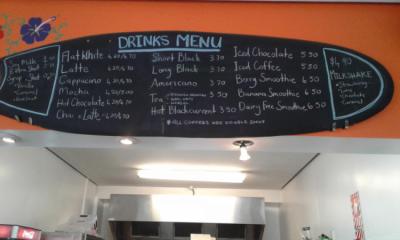 DRINKS MENU
Soy Milk
Extra Shot
Syrup Shot
Vanilla
Caramel
Hazelnut
Flat White 4.20/4.70
Latte 4.20/4.70
Cappucino 4.20/4.70
Mocha
Hot Chocolate 4.20/4.70
Chai Latte 4.20/4.70
Short Black 3.70
Long Black 3.70
Americano 3.70
Tea 3.50
Hot Blackcurrant 3.50
* ALL COFFEES ARE DOUBLE SHOT
Iced Chocolate 5.50
Iced Coffee 5.50
Berry Smoothie 6.50
Banana Smoothie 6.50
Dairy Free Smoothie 6.50
$4.90
MILKSHAKE
Strawberry
Lime
Chocolate
Caramel